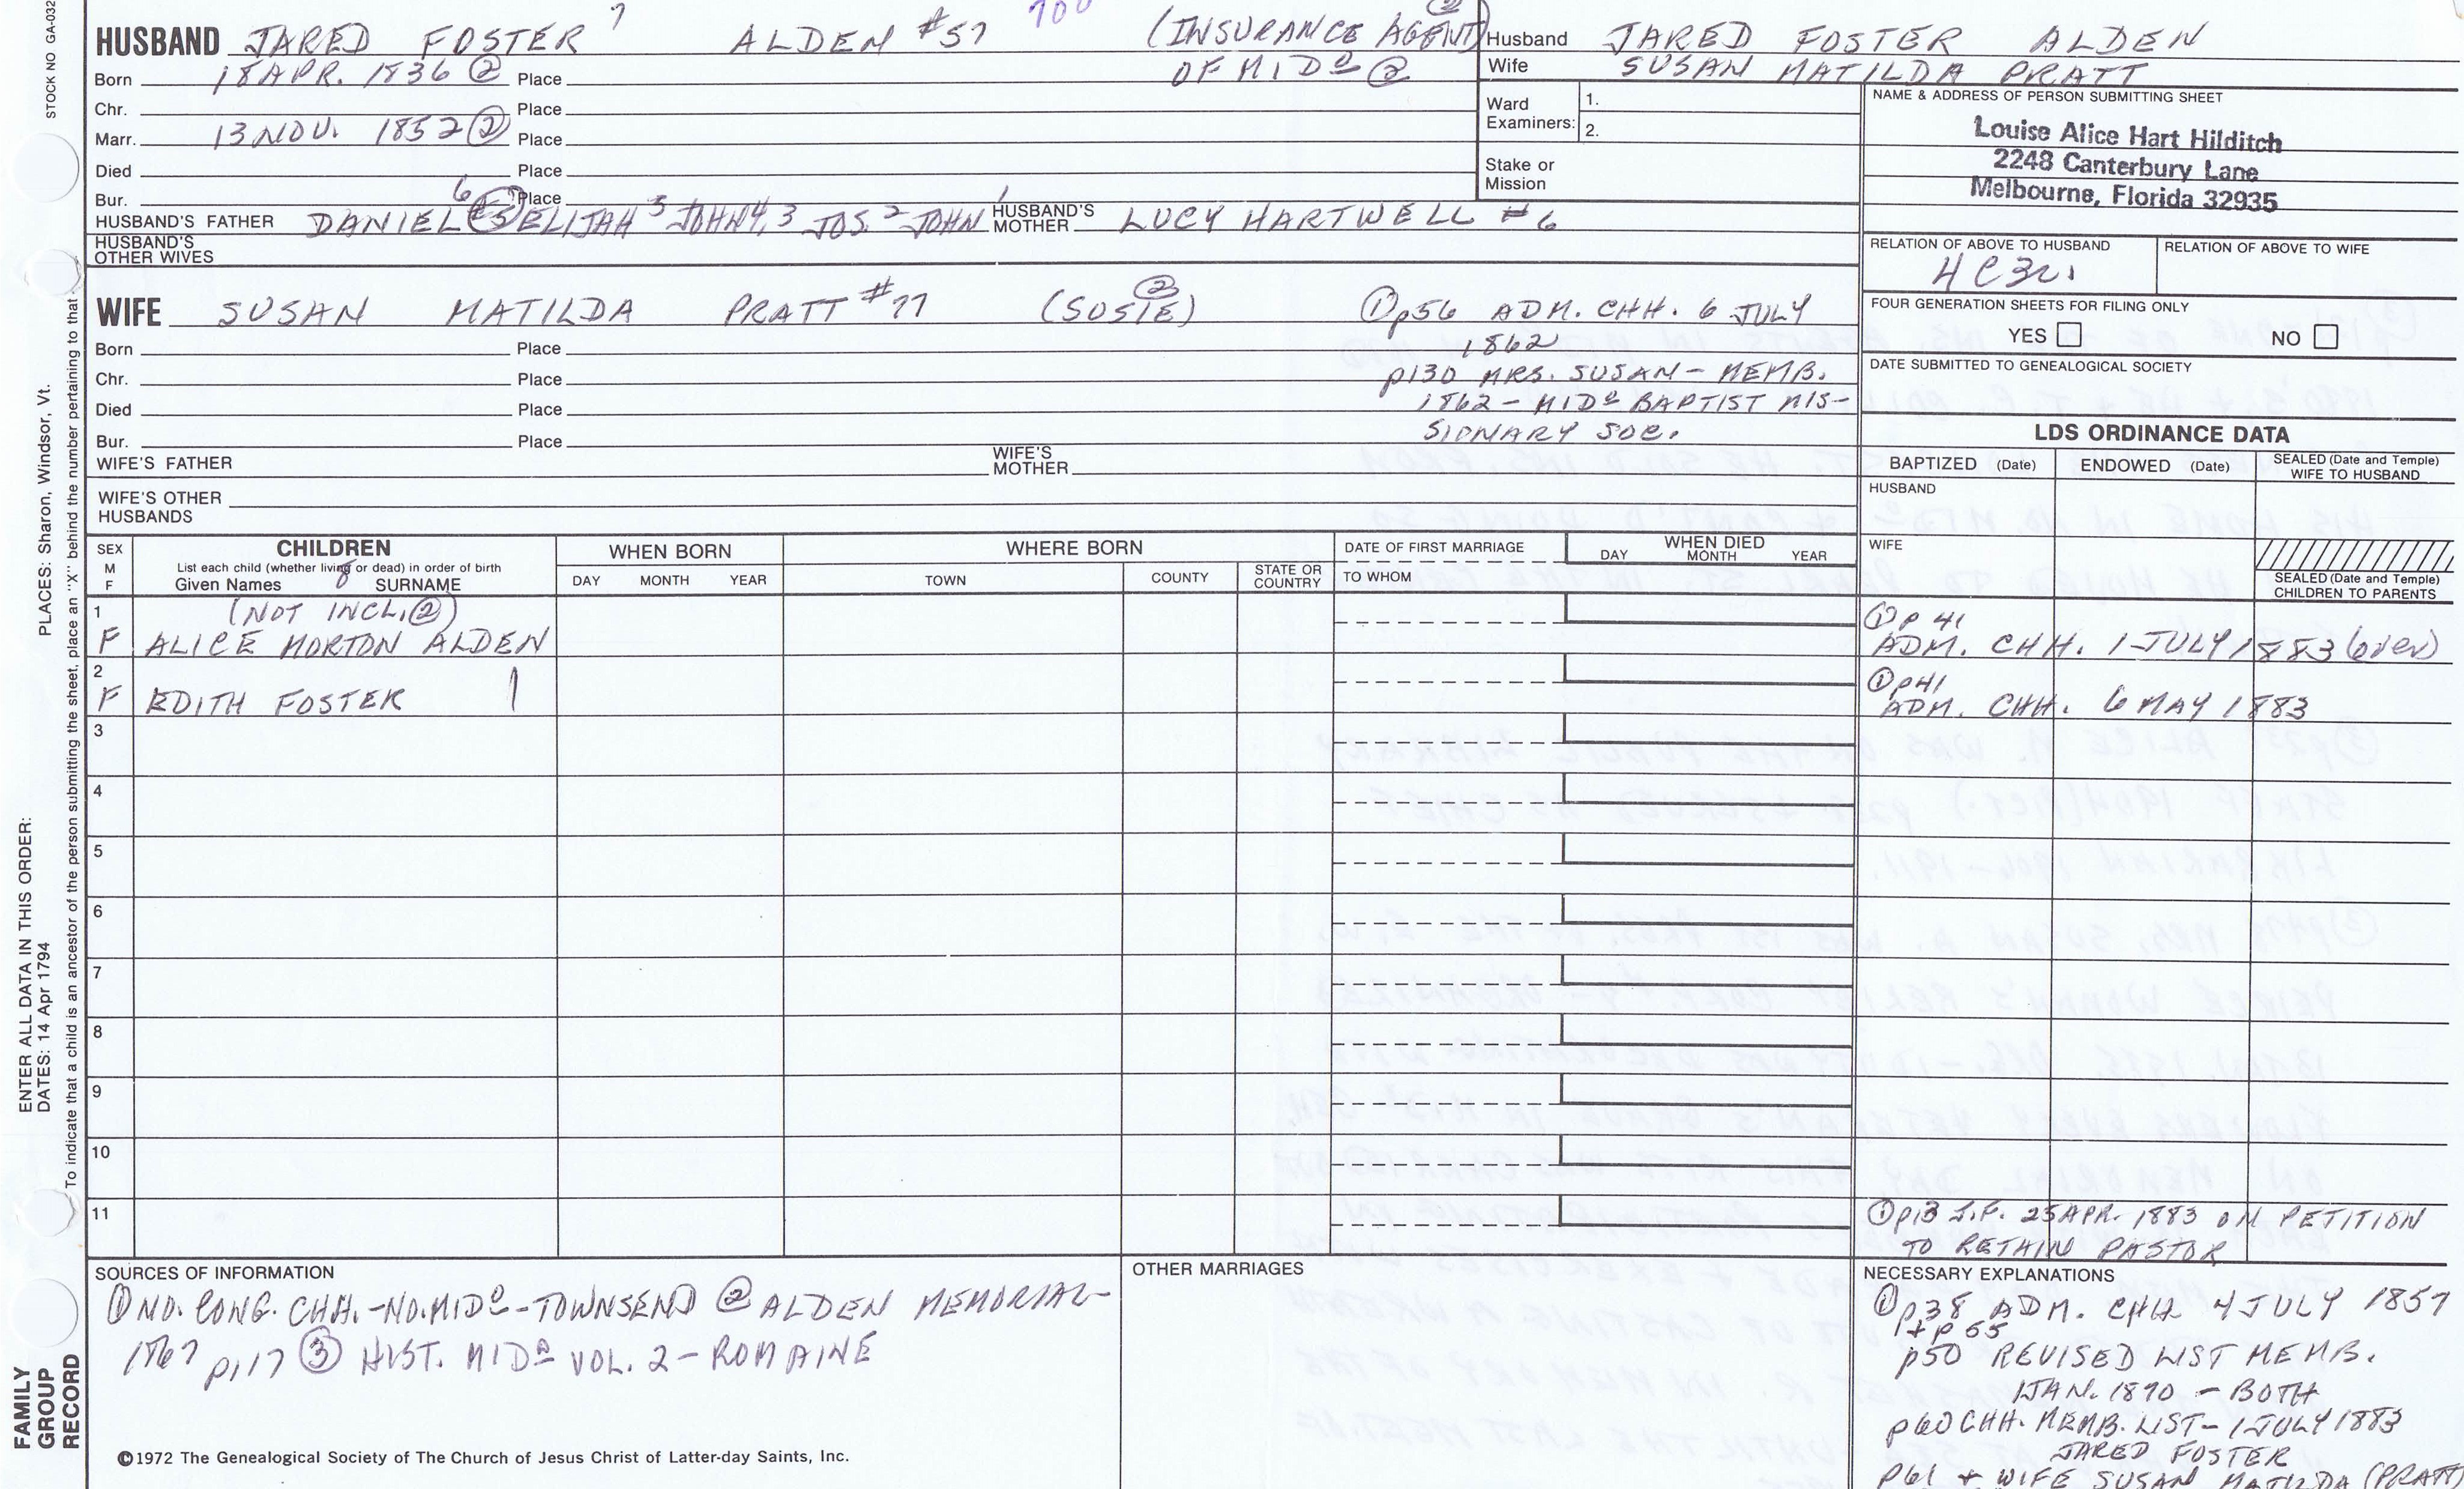 STOCK NO GA-032
HUSBAND JARED FOSTER 7 ALDEN #57 (INSURANCE AGENT)
Born 18 APR. 1836 ② Place OF MIDº ②
Chr. Place
Marr. 13 NOV. 1852 ② Place
Died Place
Bur. Place
HUSBAND'S FATHER DANIEL 6 ELIJAH 5 JOHN 4, 3 JOS. 2 JOHN 1 HUSBAND'S MOTHER LUCY HARTWELL #6
HUSBAND'S OTHER WIVES
Husband JARED FOSTER ALDEN
Wife SUSAN MATILDA PRATT
Ward Examiners: 1.
2.
Stake or Mission
NAME & ADDRESS OF PERSON SUBMITTING SHEET
Louise Alice Hart Hilditch
2248 Canterbury Lane
Melbourne, Florida 32935
RELATION OF ABOVE TO HUSBAND RELATION OF ABOVE TO WIFE
4C3r.
FOUR GENERATION SHEETS FOR FILING ONLY
YES NO
DATE SUBMITTED TO GENEALOGICAL SOCIETY
WIFE SUSAN MATILDA PRATT #77 (SUSIE) ② ①p56 ADM. CHH. 6 JULY
1862
Born Place
Chr. Place p130 MRS. SUSAN - MEMB.
Died Place 1862 - MIDº BAPTIST MIS-
Bur. Place SIONARY SOC.
WIFE'S FATHER WIFE'S MOTHER
WIFE'S OTHER HUSBANDS
LDS ORDINANCE DATA
BAPTIZED (Date) ENDOWED (Date) SEALED (Date and Temple) WIFE TO HUSBAND
HUSBAND
WIFE
SEALED (Date and Temple) CHILDREN TO PARENTS
SEX M F CHILDREN
List each child (whether living or dead) in order of birth
Given Names 8 SURNAME
WHEN BORN
DAY MONTH YEAR
WHERE BORN
TOWN COUNTY STATE OR COUNTRY
DATE OF FIRST MARRIAGE
TO WHOM
WHEN DIED
DAY MONTH YEAR
1 (NOT INCL. ②) ①p 41
F ALICE MORTON ALDEN ADM. CHH. 1 JULY 1883 (over)
2 ①p41
F EDITH FOSTER ADM. CHH. 6 MAY 1883
3
4
5
6
7
8
9
10
11 ①p13 J.F. 25 APR. 1883 ON PETITION
TO RETAIN PASTOR
SOURCES OF INFORMATION
① NO. CONG. CHH. - NO. MIDº - TOWNSEND ② ALDEN MEMORIAL -
1867 p117 ③ HIST. MIDº VOL. 2 - ROMAINE
OTHER MARRIAGES
NECESSARY EXPLANATIONS
①p38 ADM. CHH 4 JULY 1857
+ p 55
p50 REVISED LIST MEMB.
1 JAN. 1870 - BOTH
p60 CHH. MEMB. LIST - 1 JULY 1883
JARED FOSTER
p61 + WIFE SUSAN MATILDA (PRATT)
©1972 The Genealogical Society of The Church of Jesus Christ of Latter-day Saints, Inc.
FAMILY GROUP RECORD
ENTER ALL DATA IN THIS ORDER:
DATES: 14 Apr 1794
PLACES: Sharon, Windsor, Vt.
To indicate that a child is an ancestor of the person submitting the sheet, place an "X" behind the number pertaining to that